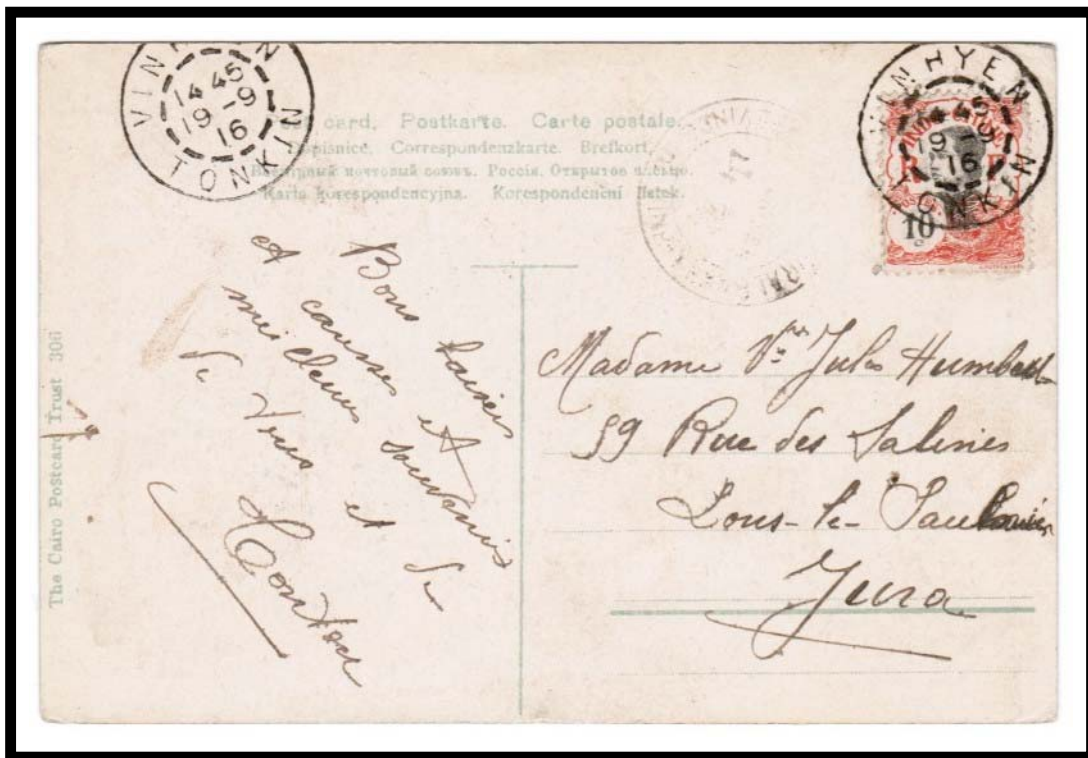 VINHYEN
14 45
19 -9
16
TONKIN
Post card. Postkarte. Carte postale.
Dopisnice. Correspondenzkarte. Brefkort.
Всемірный почтовый союзъ. Россія. Открытое письмо.
Karta korespondencyjna. Korespondenční lístek.
VINHYEN
14 45
19 -9
16
TONKIN
INDO-CHINE
R F
10
The Cairo Postcard Trust 306
Bons baisers
et caresses et
meilleurs souvenirs
de Tous et de
Madame Vve Jules Humbert
59 Rue des Salines
Lons-le-Saulnier
Jura